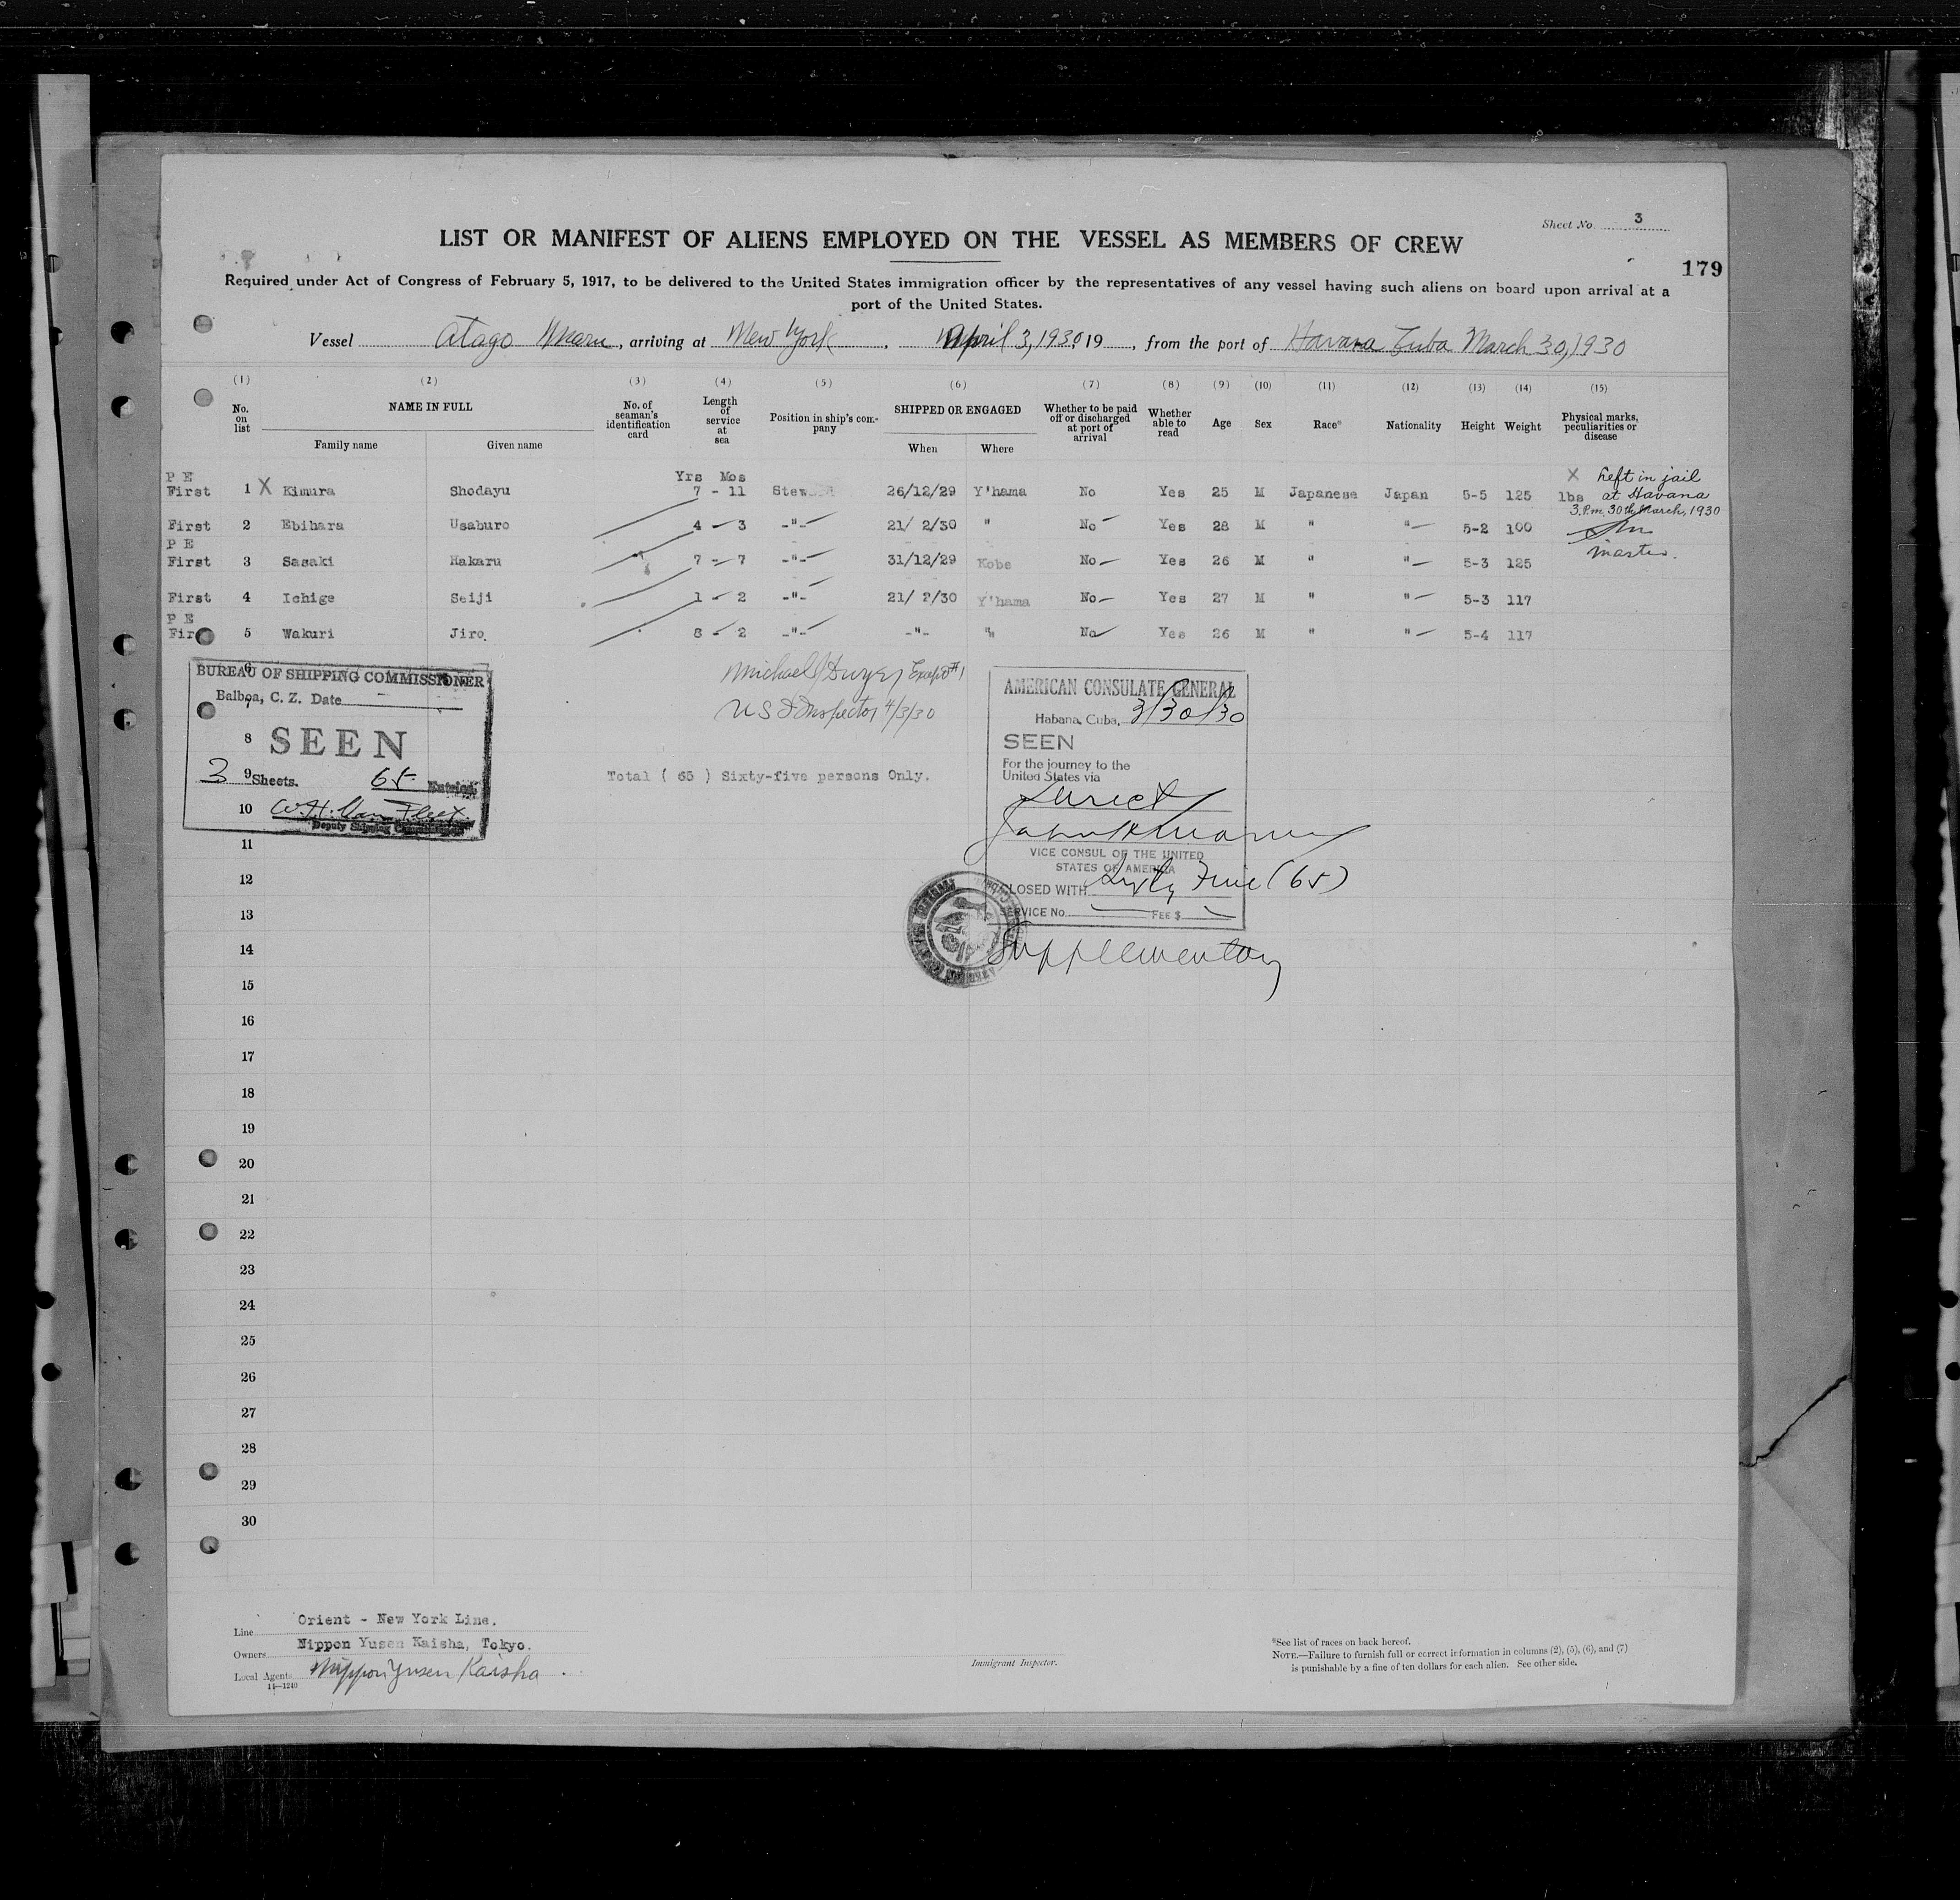 Sheet No. 3
LIST OR MANIFEST OF ALIENS EMPLOYED ON THE VESSEL AS MEMBERS OF CREW
179
Required under Act of Congress of February 5, 1917, to be delivered to the United States immigration officer by the representatives of any vessel having such aliens on board upon arrival at a
port of the United States.
Vessel Atago Maru, arriving at New York, April 3, 1930 19 , from the port of Havana Cuba March 30, 1930
(1) (2) (3) (4) (5) (6) (7) (8) (9) (10) (11) (12) (13) (14) (15)
No. on list NAME IN FULL Family name Given name No. of seaman's identification card Length of service at sea Position in ship's company SHIPPED OR ENGAGED When Where Whether to be paid off or discharged at port of arrival Whether able to read Age Sex Race* Nationality Height Weight Physical marks, peculiarities or disease
P E Yrs Mos
First 1 X Kimura Shodayu 7 - 11 26/12/29 Y'hama No Yes 25 M Japanese Japan 5-5 125 lbs
X Left in jail
at Havana
3. P.m. 30th March, 1930
master.
First 2 Ebihara Usaburo 4 - 3 -"- 21/ 2/30 " No Yes 28 M " " 5-2 100
P E
First 3 Sasaki Hakaru 7 - 7 -"- 31/12/29 Kobe No Yes 26 M " " 5-3 125
First 4 Ichige Seiji 1 - 2 -"- 21/ 2/30 Y'hama No Yes 27 M " " 5-3 117
P E
First 5 Wakuri Jiro 8 - 2 -"- -"- " No Yes 26 M " " 5-4 117
BUREAU OF SHIPPING COMMISSIONER
Balboa, C. Z. Date
SEEN
3 Sheets. 65 Entries
W. H. Van Fleet
Deputy Shipping Commissioner
Michael J Dwyer
U S I Inspector 4/3/30
Total ( 65 ) Sixty-five persons Only.
AMERICAN CONSULATE GENERAL
Habana, Cuba, 3/30/30
SEEN
For the journey to the
United States via
Direct
VICE CONSUL OF THE UNITED
STATES OF AMERICA
CLOSED WITH Sixty Five (65)
SERVICE No. FEE $
Supplementary
6
7
8
9
10
11
12
13
14
15
16
17
18
19
20
21
22
23
24
25
26
27
28
29
30
Line Orient - New York Line.
Owners Nippon Yusen Kaisha, Tokyo.
Local Agents Nippon Yusen Kaisha
14—1240
Immigrant Inspector.
*See list of races on back hereof.
NOTE.—Failure to furnish full or correct information in columns (2), (5), (6), and (7)
is punishable by a fine of ten dollars for each alien. See other side.